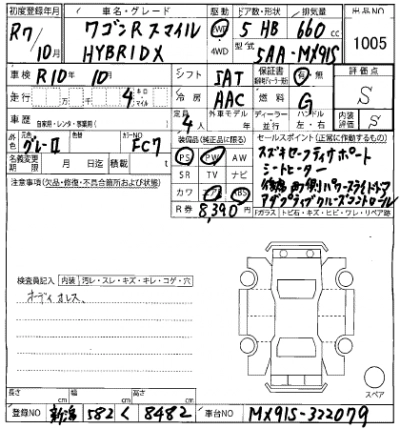 初度登録年月 車名・グレード 駆動 ドア数・形状 排気量 出品NO
R7/10月 ワゴンRスマイル FWD 5 HB 660cc 1005
HYBRID X 4WD 型式 5AA-MX91S
車検 R10年10月 シフト IAT 保証書 有 無 評価点
走行 4 冷房 AAC 燃料 G S
車歴 自家用・レンタ・事業用 定員 4人 外車モデル 年 ディーラー 並行 ハンドル 左・右 内装評価 S
色 元色 グレーII 色替 カラーNO FC7 装備品(純正品に限る) セールスポイント(正常に作動するもの)
名義変更期限 月 日迄 積載 t PS PW AW スズキセーフティサポート
注意事項(欠品・修復・不具合箇所および状態) SR TV ナビ シートヒーター
カワ エア ABS 後席両側パワースライドドア
R券 8,390円 アダプティブクルーズコントロール
Fガラス トビ石・キズ・ヒビ・ワレ・リペア跡
検査員記入 内装 汚レ・スレ・キズ・キレ・コゲ・穴
ボディオレス、
スペア
長さ cm 幅 cm 高さ cm
登録NO 新潟 582 く 8482 車台NO MX91S-322079